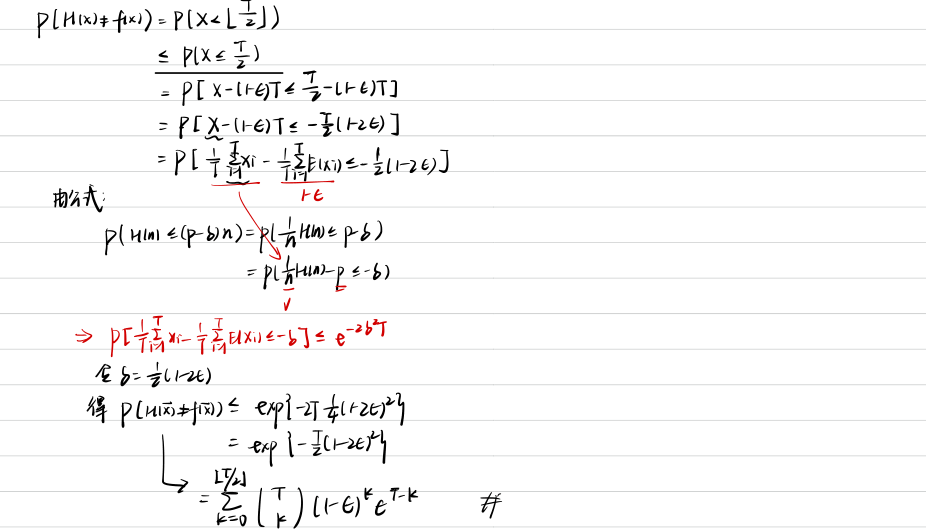 P(H(x)≠f(x)) = P(X<⌊T/2⌋)
≤ P(X ≤ T/2)
= P[X-(1-ϵ)T ≤ T/2-(1-ϵ)T]
= P[X-(1-ϵ)T ≤ -T/2(1-2ϵ)]
= P[1/T ∑_{i=1}^{T} xi - 1/T ∑_{i=1}^{T} E(xi) ≤ -1/2(1-2ϵ)]
1-ϵ
由公式:
P(H(n) ≤ (p-δ)n) = P(1/n H(n) ≤ p-δ)
= P(1/n H(n) - p ≤ -δ)
⇒ P[1/T ∑_{i=1}^{T} xi - 1/T ∑_{i=1}^{T} E(xi) ≤ -δ] ≤ e^{-2δ²T}
令 δ = 1/2(1-2ϵ)
得 P(H(x)≠f(x)) ≤ exp{-2T 1/4(1-2ϵ)²}
= exp{-T/2(1-2ϵ)²}
= ∑_{k=0}^{⌊T/2⌋} (T k) (1-ϵ)^k ϵ^{T-k} #